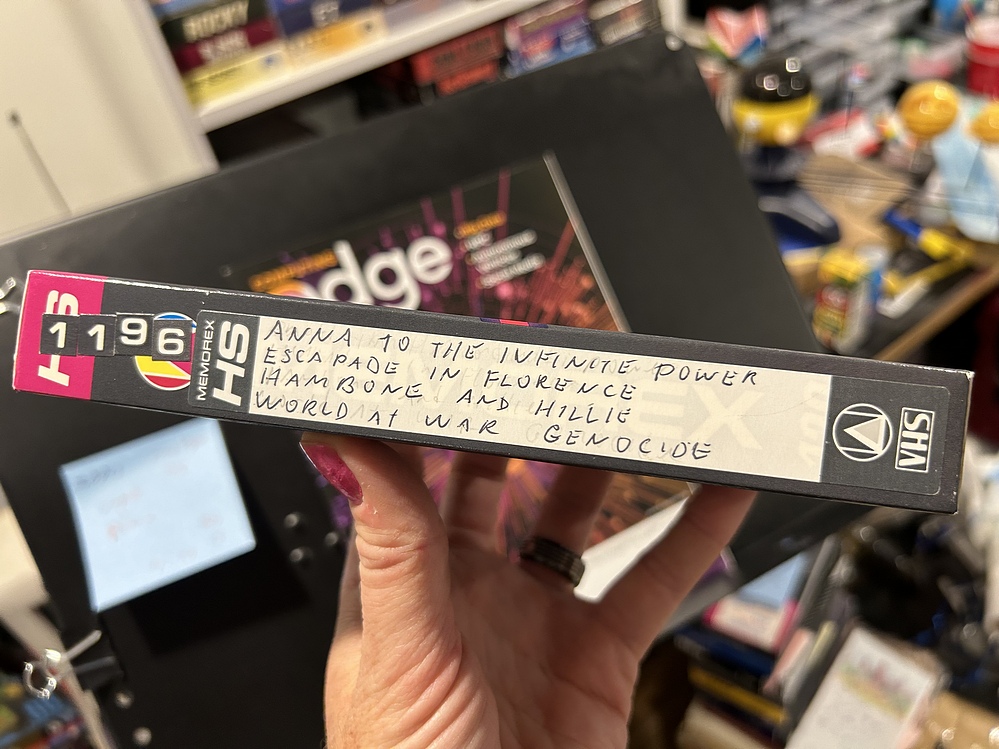 ROCKY
edge
HS
1196
MEMOREX
HS
ANNA TO THE INFINITE POWER
ESCAPADE IN FLORENCE
HAMBONE AND HILLIE
WORLD AT WAR GENOCIDE
VHS